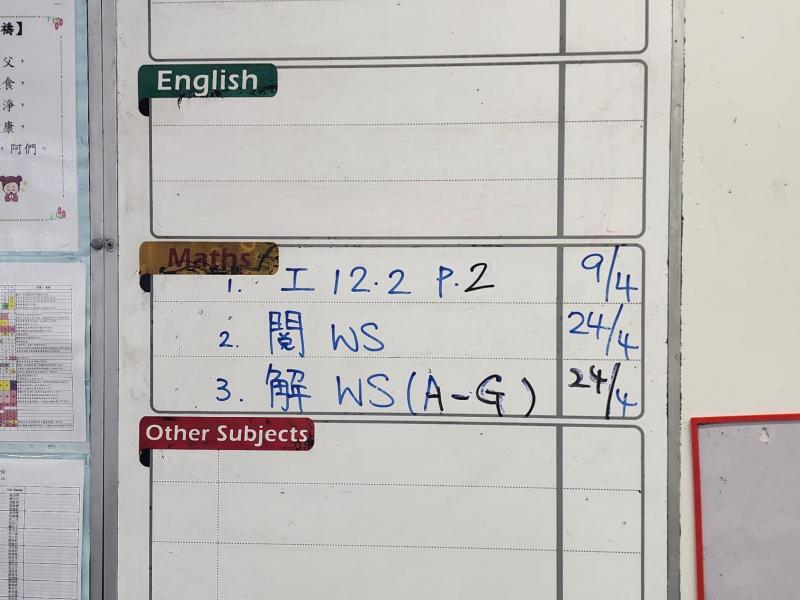 禱】
父，
食，
淨，
康，
，阿們。
English
Maths
1. 工 12.2 P.2 9/4
2. 閱 WS 24/4
3. 解 WS (A-G) 24/4
Other Subjects